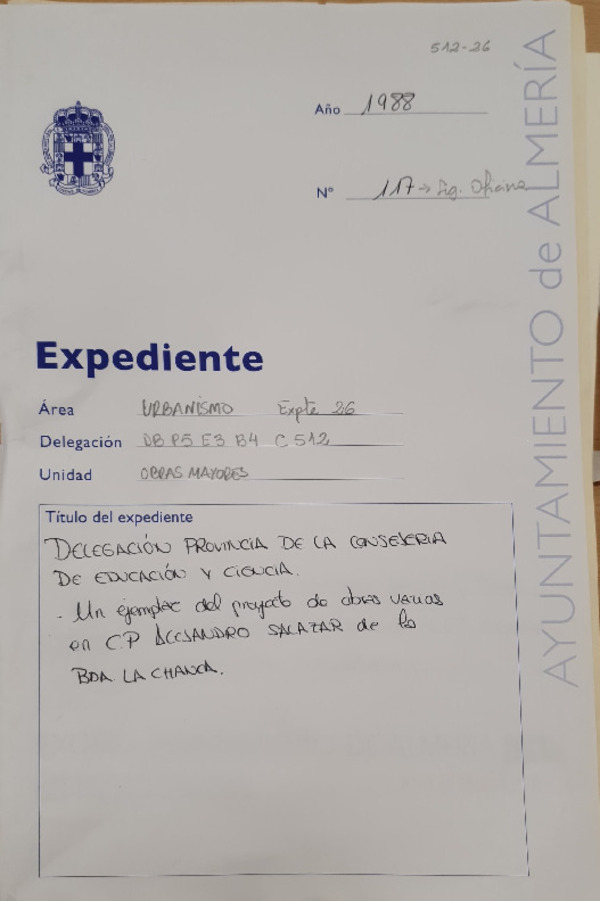 512-26
Año 1988
Nº 117 → Sig. Oficina
AYUNTAMIENTO de ALMERÍA
Expediente
Área URBANISMO Expte 26
Delegación DB P5 E3 B4 C 512
Unidad OBRAS MAYORES
Título del expediente
DELEGACIÓN PROVINCIA DE LA CONSEJERIA
DE EDUCACIÓN Y CIENCIA.
. Un ejemplar del proyecto de obras varias
en C.P ALEJANDRO SALAZAR de la
BDA LA CHANCA.